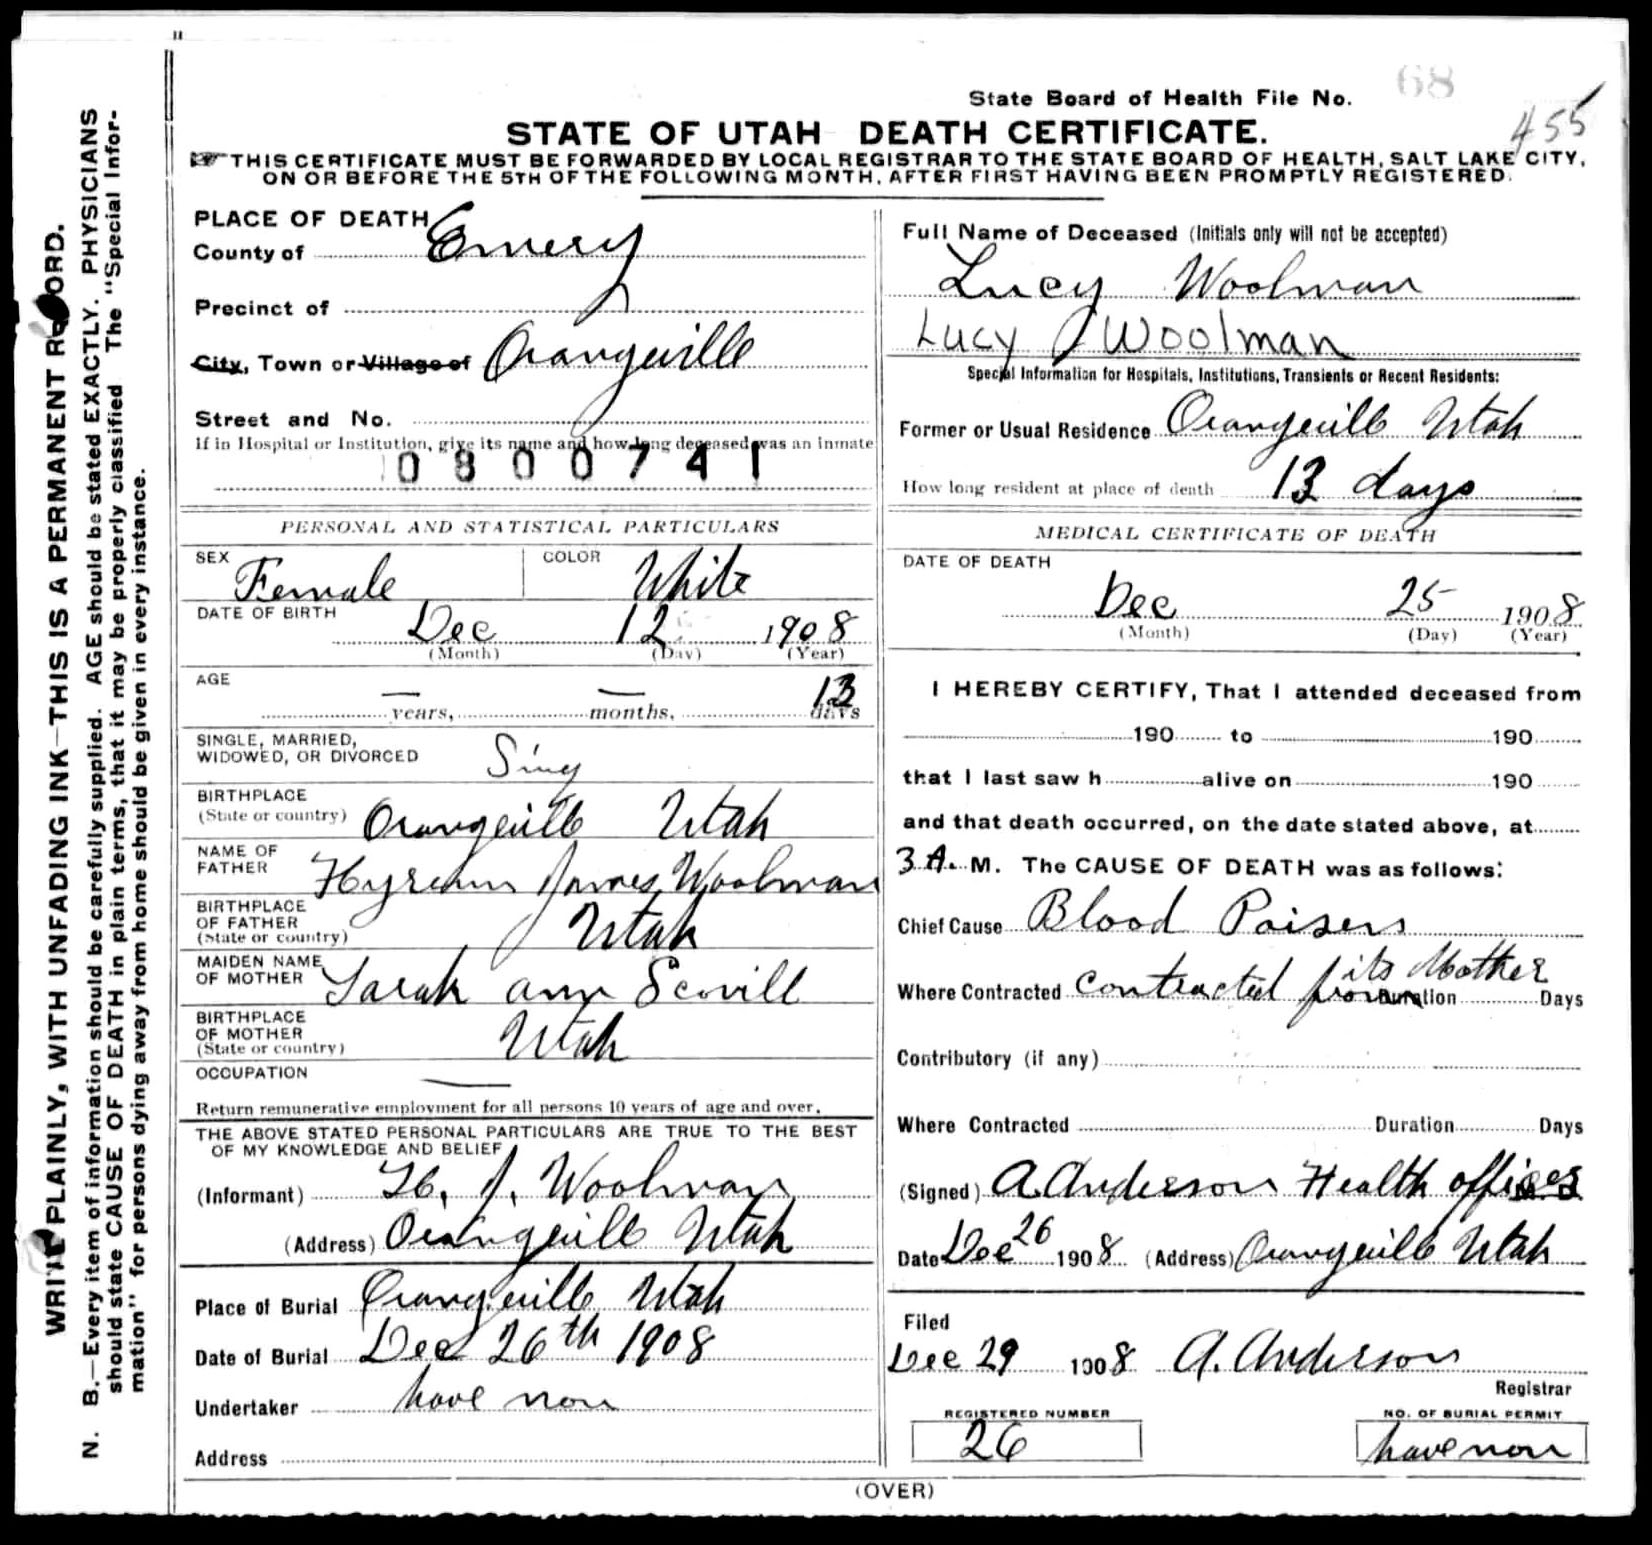 WRITE PLAINLY, WITH UNFADING INK—THIS IS A PERMANENT RECORD.
N. B.—Every item of information should be carefully supplied. AGE should be stated EXACTLY. PHYSICIANS
should state CAUSE OF DEATH in plain terms, that it may be properly classified The "Special Infor-
mation" for persons dying away from home should be given in every instance.
68
State Board of Health File No.
455
STATE OF UTAH DEATH CERTIFICATE.
THIS CERTIFICATE MUST BE FORWARDED BY LOCAL REGISTRAR TO THE STATE BOARD OF HEALTH, SALT LAKE CITY,
ON OR BEFORE THE 5TH OF THE FOLLOWING MONTH, AFTER FIRST HAVING BEEN PROMPTLY REGISTERED.
PLACE OF DEATH
County of Emery
Precinct of
City, Town or Village of Orangeville
Street and No.
If in Hospital or Institution, give its name and how long deceased was an inmate
0800741
PERSONAL AND STATISTICAL PARTICULARS
SEX Female COLOR White
DATE OF BIRTH
Dec 12 1908
(Month) (Day) (Year)
AGE
— years, — months, 13 days
SINGLE, MARRIED,
WIDOWED, OR DIVORCED Sing
BIRTHPLACE
(State or country) Orangeville Utah
NAME OF
FATHER Hyrum James Woolman
BIRTHPLACE
OF FATHER
(State or country) Utah
MAIDEN NAME
OF MOTHER Sarah ann Scovill
BIRTHPLACE
OF MOTHER
(State or country) Utah
OCCUPATION —
Return remunerative employment for all persons 10 years of age and over.
THE ABOVE STATED PERSONAL PARTICULARS ARE TRUE TO THE BEST
OF MY KNOWLEDGE AND BELIEF
(Informant) H. J. Woolman
(Address) Orangeville Utah
Place of Burial Orangeville Utah
Date of Burial Dec 26th 1908
Undertaker have non
Address
Full Name of Deceased (Initials only will not be accepted)
Lucy Woolman
Lucy Woolman
Special Information for Hospitals, Institutions, Transients or Recent Residents:
Former or Usual Residence Orangeville Utah
How long resident at place of death 13 days
MEDICAL CERTIFICATE OF DEATH
DATE OF DEATH
Dec 25 1908
(Month) (Day) (Year)
I HEREBY CERTIFY, That I attended deceased from
190 to 190
that I last saw h alive on 190
and that death occurred, on the date stated above, at
3 A. M. The CAUSE OF DEATH was as follows:
Chief Cause Blood Poisen
Where Contracted contracted from its Mother Duration Days
Contributory (if any)
Where Contracted Duration Days
(Signed) A Anderson Health officer
Date Dec 26 1908 (Address) Orangeville Utah
Filed
Dec 29 1908 A. Anderson
Registrar
REGISTERED NUMBER
26
NO. OF BURIAL PERMIT
have non
(OVER)